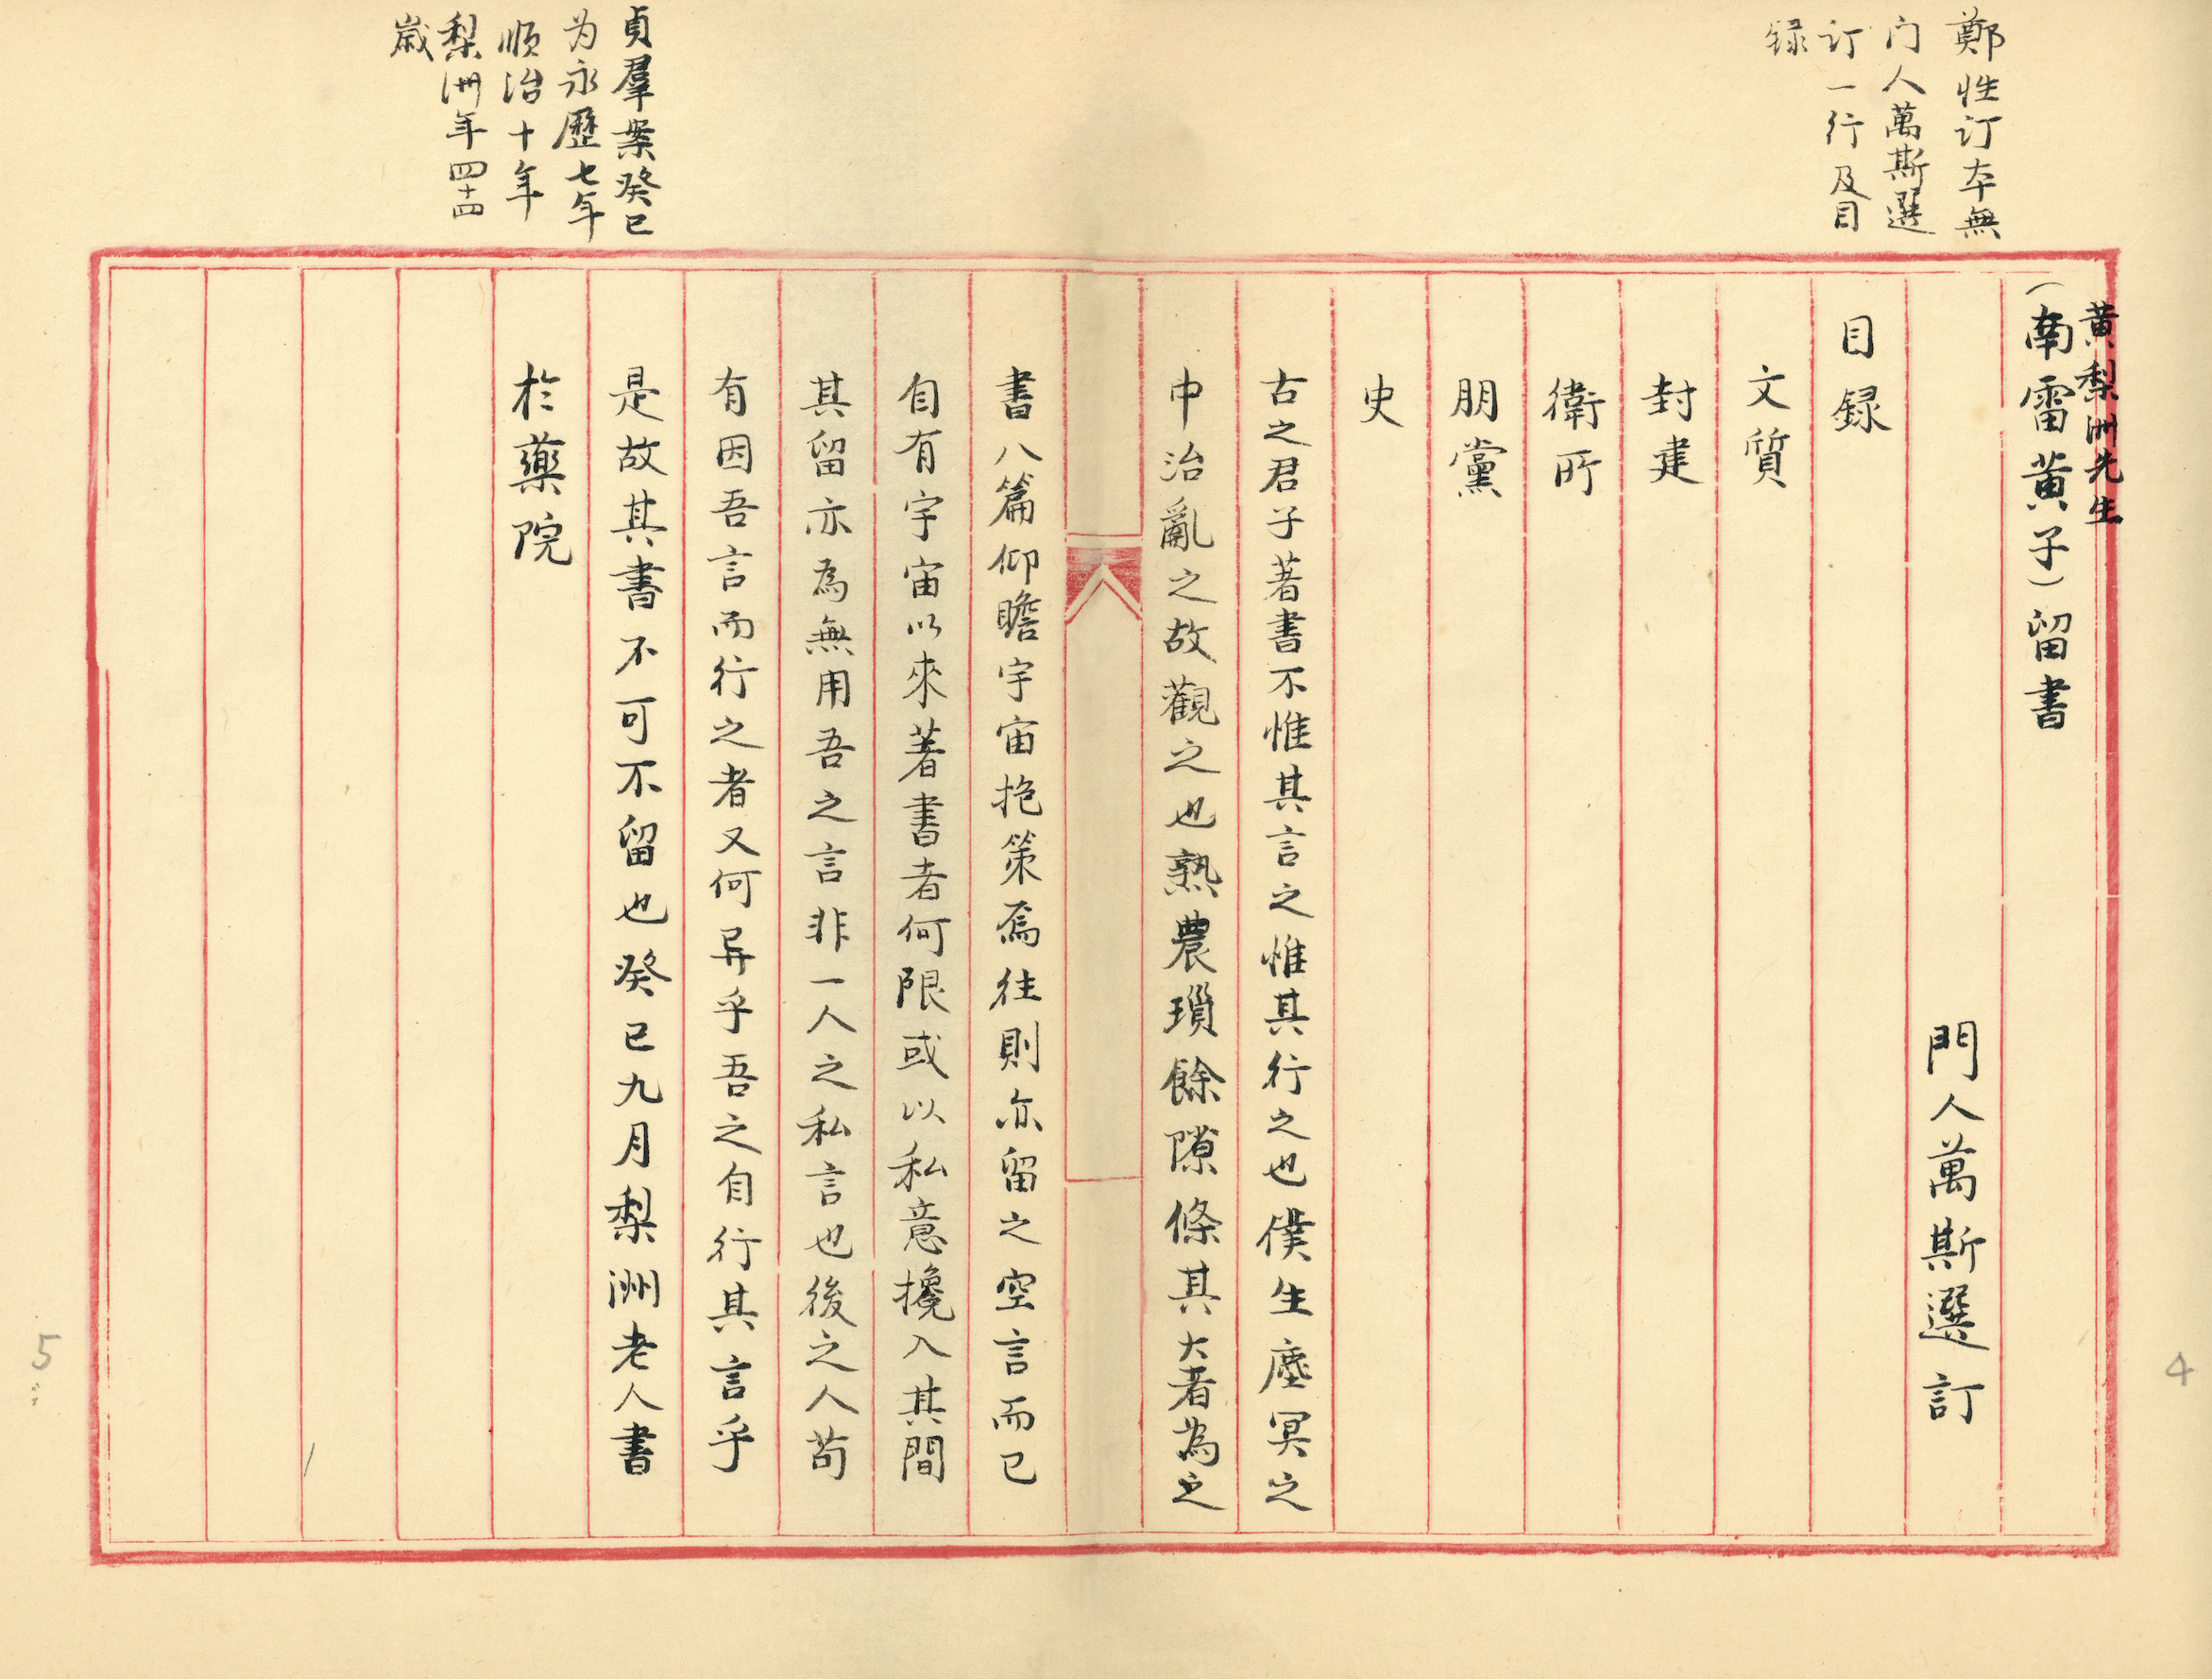 鄭性订本無
门人萬斯選
订一行及目
録
黃梨洲先生
（南雷黃子）留書
門人萬斯選訂
目録
文質
封建
衛所
朋黨
史
古之君子著書不惟其言之惟其行之也僕生塵冥之
中治亂之故觀之也熟農瑣餘隙條其大者為之
書八篇仰瞻宇宙抱策焉往則亦留之空言而已
自有宇宙以來著書者何限或以私意攙入其間
其留亦為無用吾之言非一人之私言也後之人苟
有因吾言而行之者又何异乎吾之自行其言乎
是故其書不可不留也癸已九月梨洲老人書
於藥院
貞羣案癸已
为永歷七年
順治十年
梨洲年四十四
歲
4
5